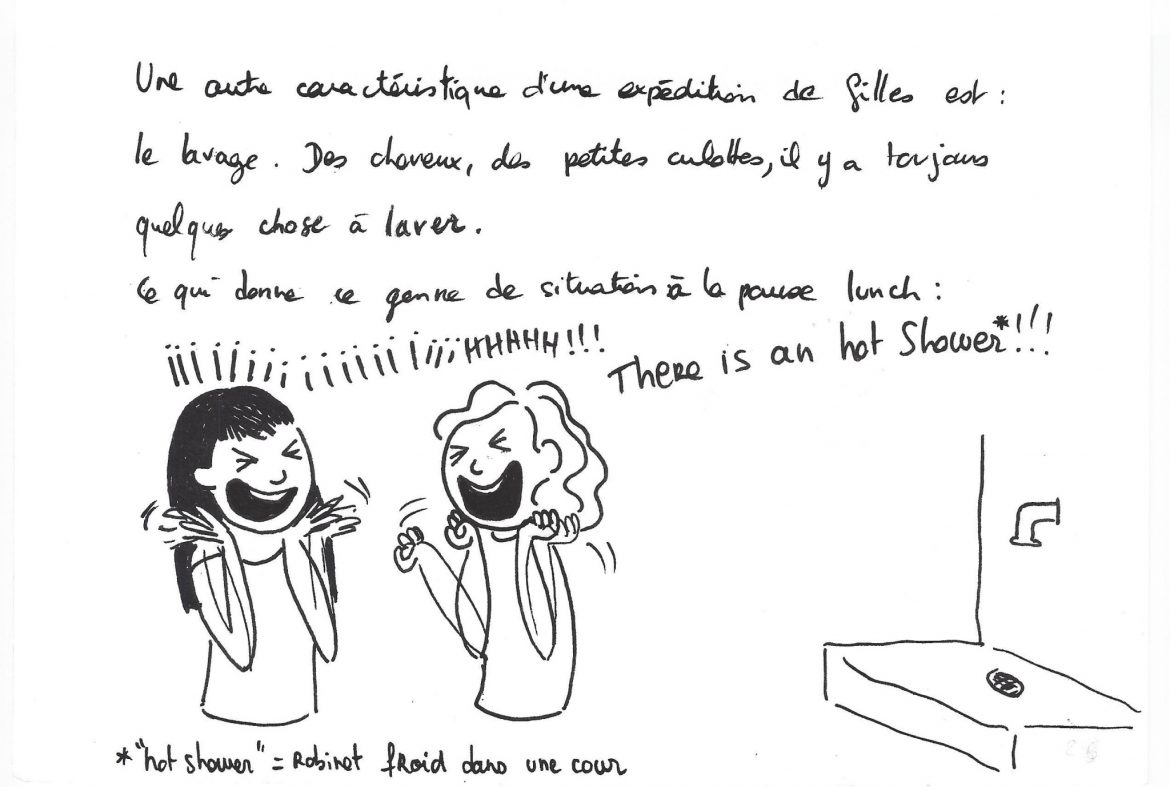 Une autre caractéristique d'une expédition de Gilles est :
le lavage. Des cheveux, des petites culottes, il y a toujours
quelques chose à laver.
Ce qui donne ce genre de situation à la pause lunch :
iiiiiiiiiiiiiiiiiiiiiHHHHH!!!
There is an hot Shower*!!!
*"hot shower" = Robinet froid dans une cour
26